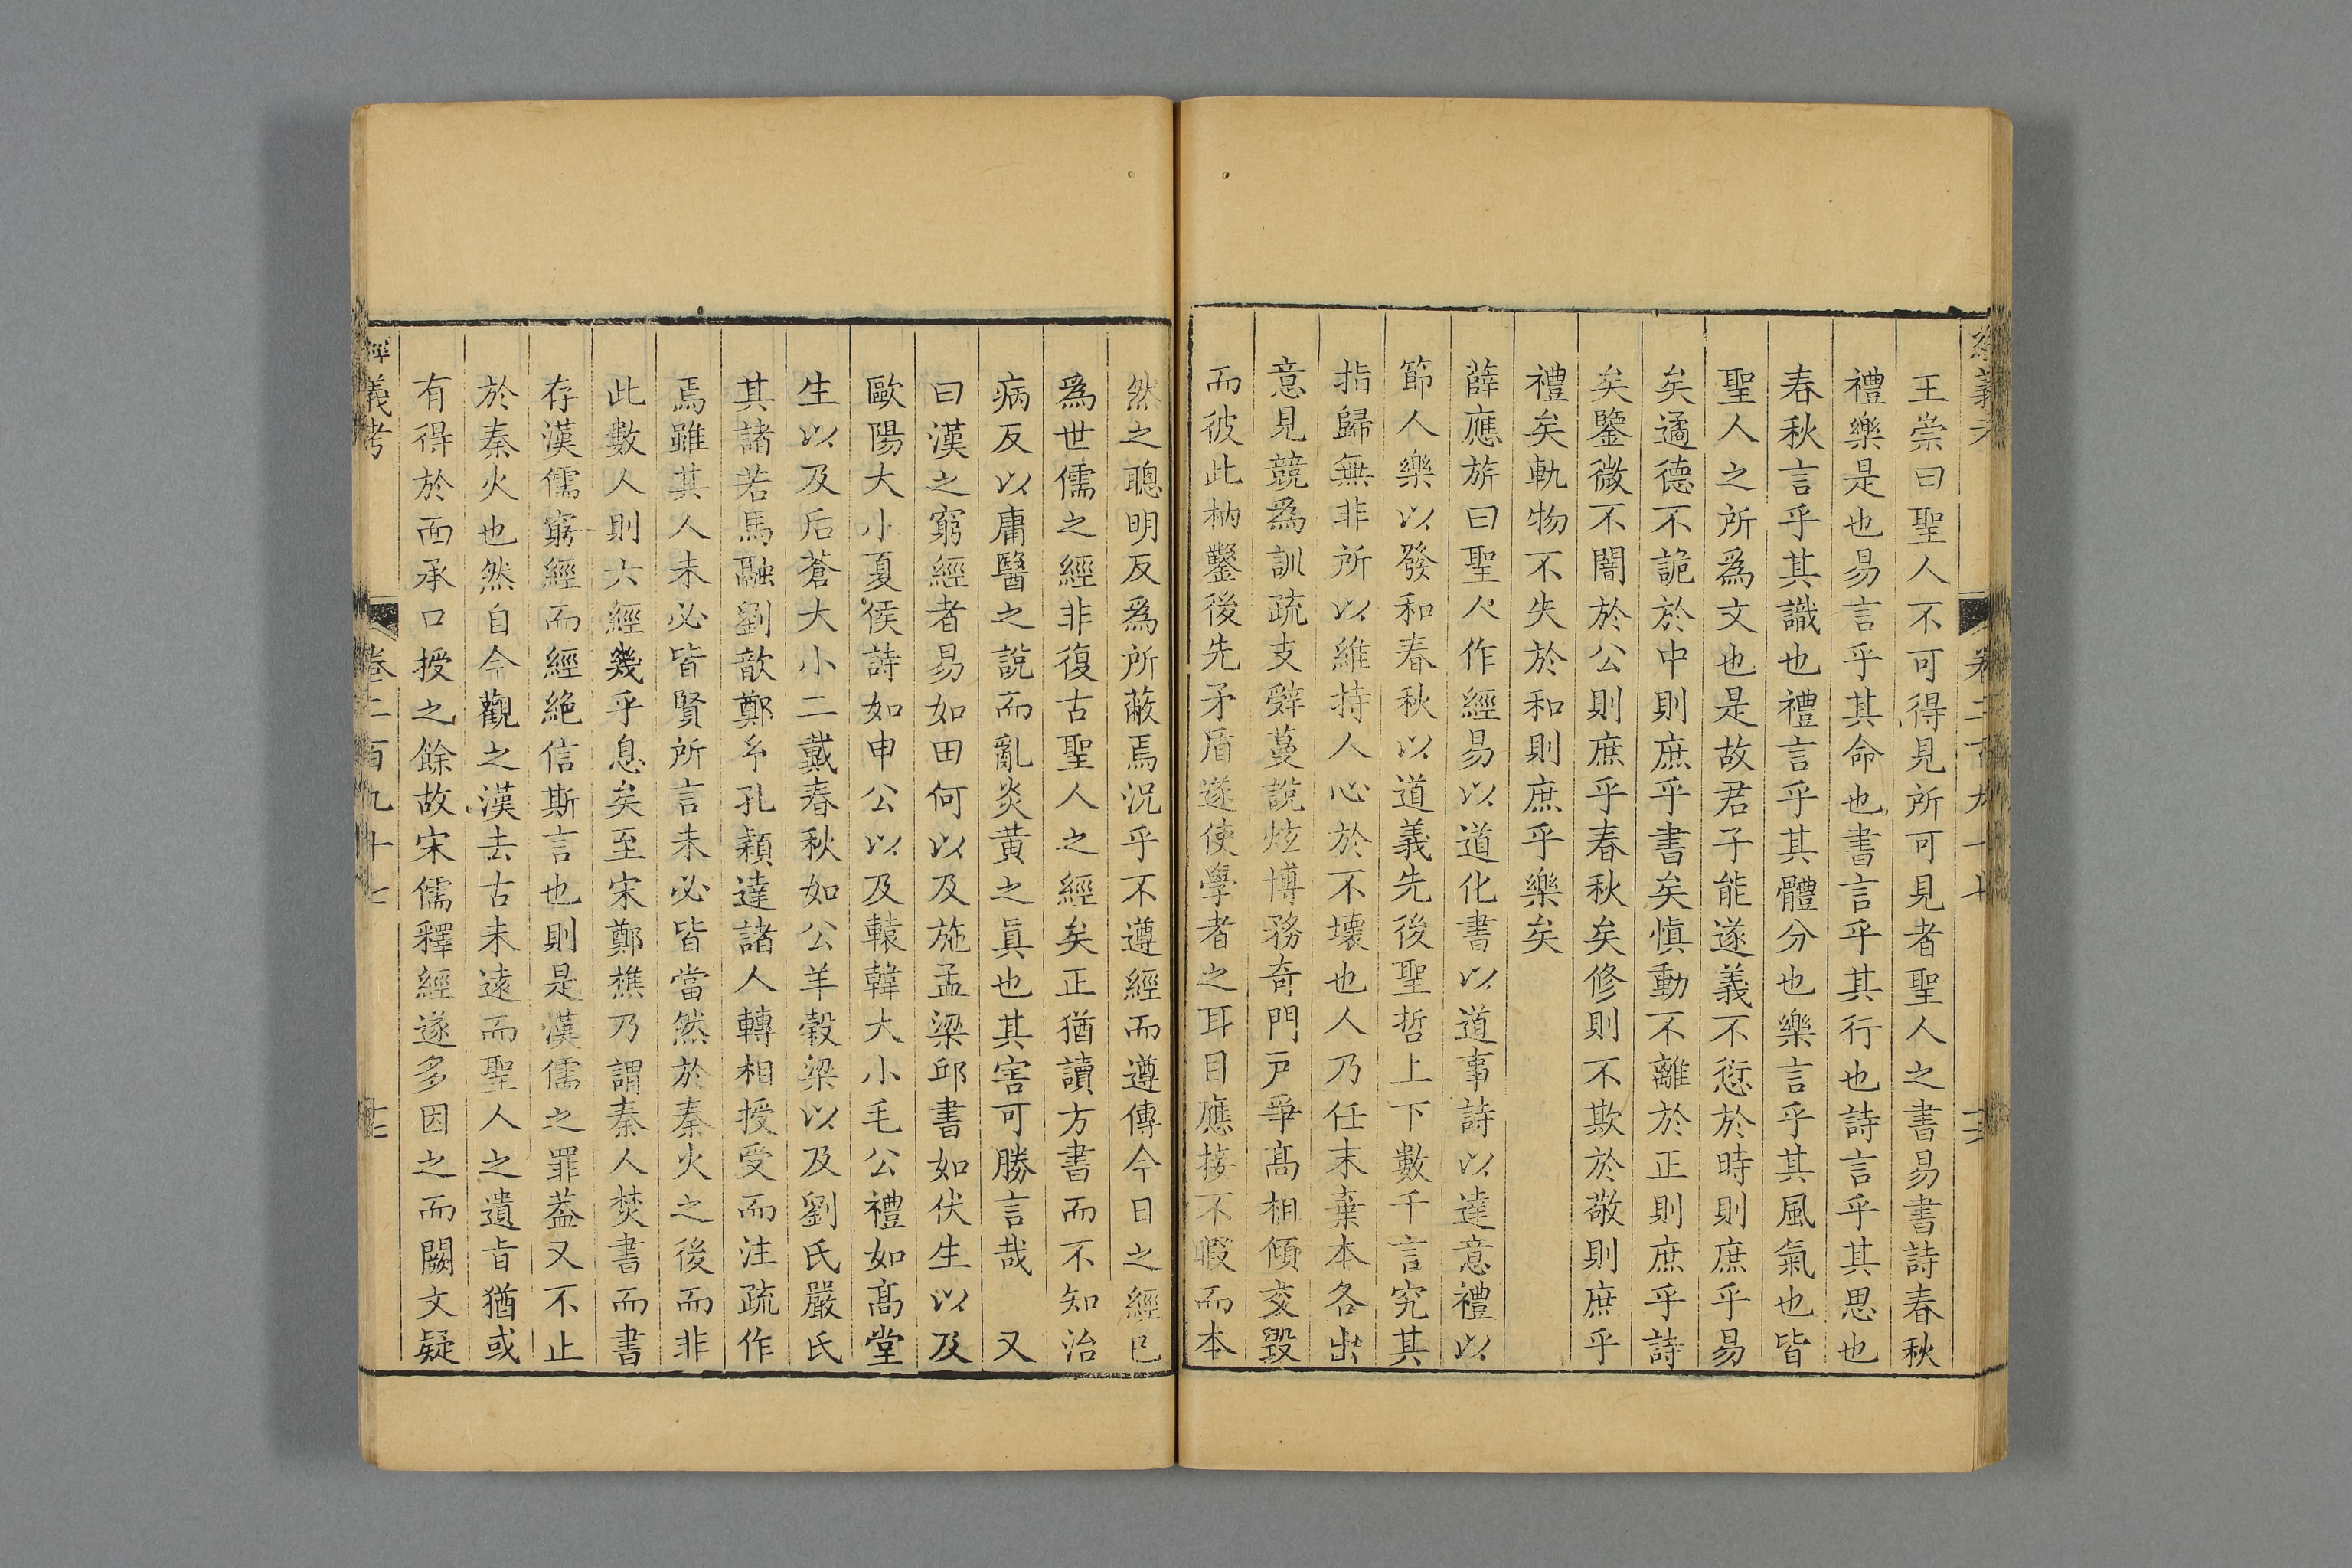 王崇曰聖人不可得見所可見者聖人之書易書詩春秋
禮樂是也易言乎其命也書言乎其行也詩言乎其思也
春秋言乎其識也禮言乎其體分也樂言乎其風氣也皆
聖人之所爲文也是故君子能遂義不愆於時則庶乎易
矣遹德不詭於中則庶乎書矣愼動不離於正則庶乎詩
矣鑒微不闇於公則庶乎春秋矣修則不欺於敬則庶乎
禮矣軌物不失於和則庶乎樂矣
薛應旂曰聖人作經易以道化書以道事詩以達意禮以
節人樂以發和春秋以道義先後聖哲上下數千言究其
指歸無非所以維持人心於不壞也人乃任末棄本各出
意見競爲訓疏支辭蔓說炫博務奇門戸爭髙相傾交毀
而彼此枘鑿後先矛盾遂使學者之耳目應接不暇而本
然之聰明反爲所蔽焉況乎不遵經而遵傳今日之經已
爲世儒之經非復古聖人之經矣正猶讀方書而不知治
病反以庸醫之說而亂炎黃之眞也其害可勝言哉　又
曰漢之窮經者易如田何以及施孟梁邱書如伏生以及
歐陽大小夏侯詩如申公以及轅韓大小毛公禮如髙堂
生以及后蒼大小二戴春秋如公羊穀梁以及劉氏嚴氏
其諸若馬融劉歆鄭𤣥孔穎達諸人轉相授受而注疏作
焉雖其人未必皆賢所言未必皆當然於秦火之後而非
此數人則六經幾乎息矣至宋鄭樵乃謂秦人焚書而書
存漢儒窮經而經絶信斯言也則是漢儒之罪葢又不止
於秦火也然自今觀之漢去古未遠而聖人之遺旨猶或
有得於面承口授之餘故宋儒釋經遂多因之而闕文疑
經義考　卷二百九十七